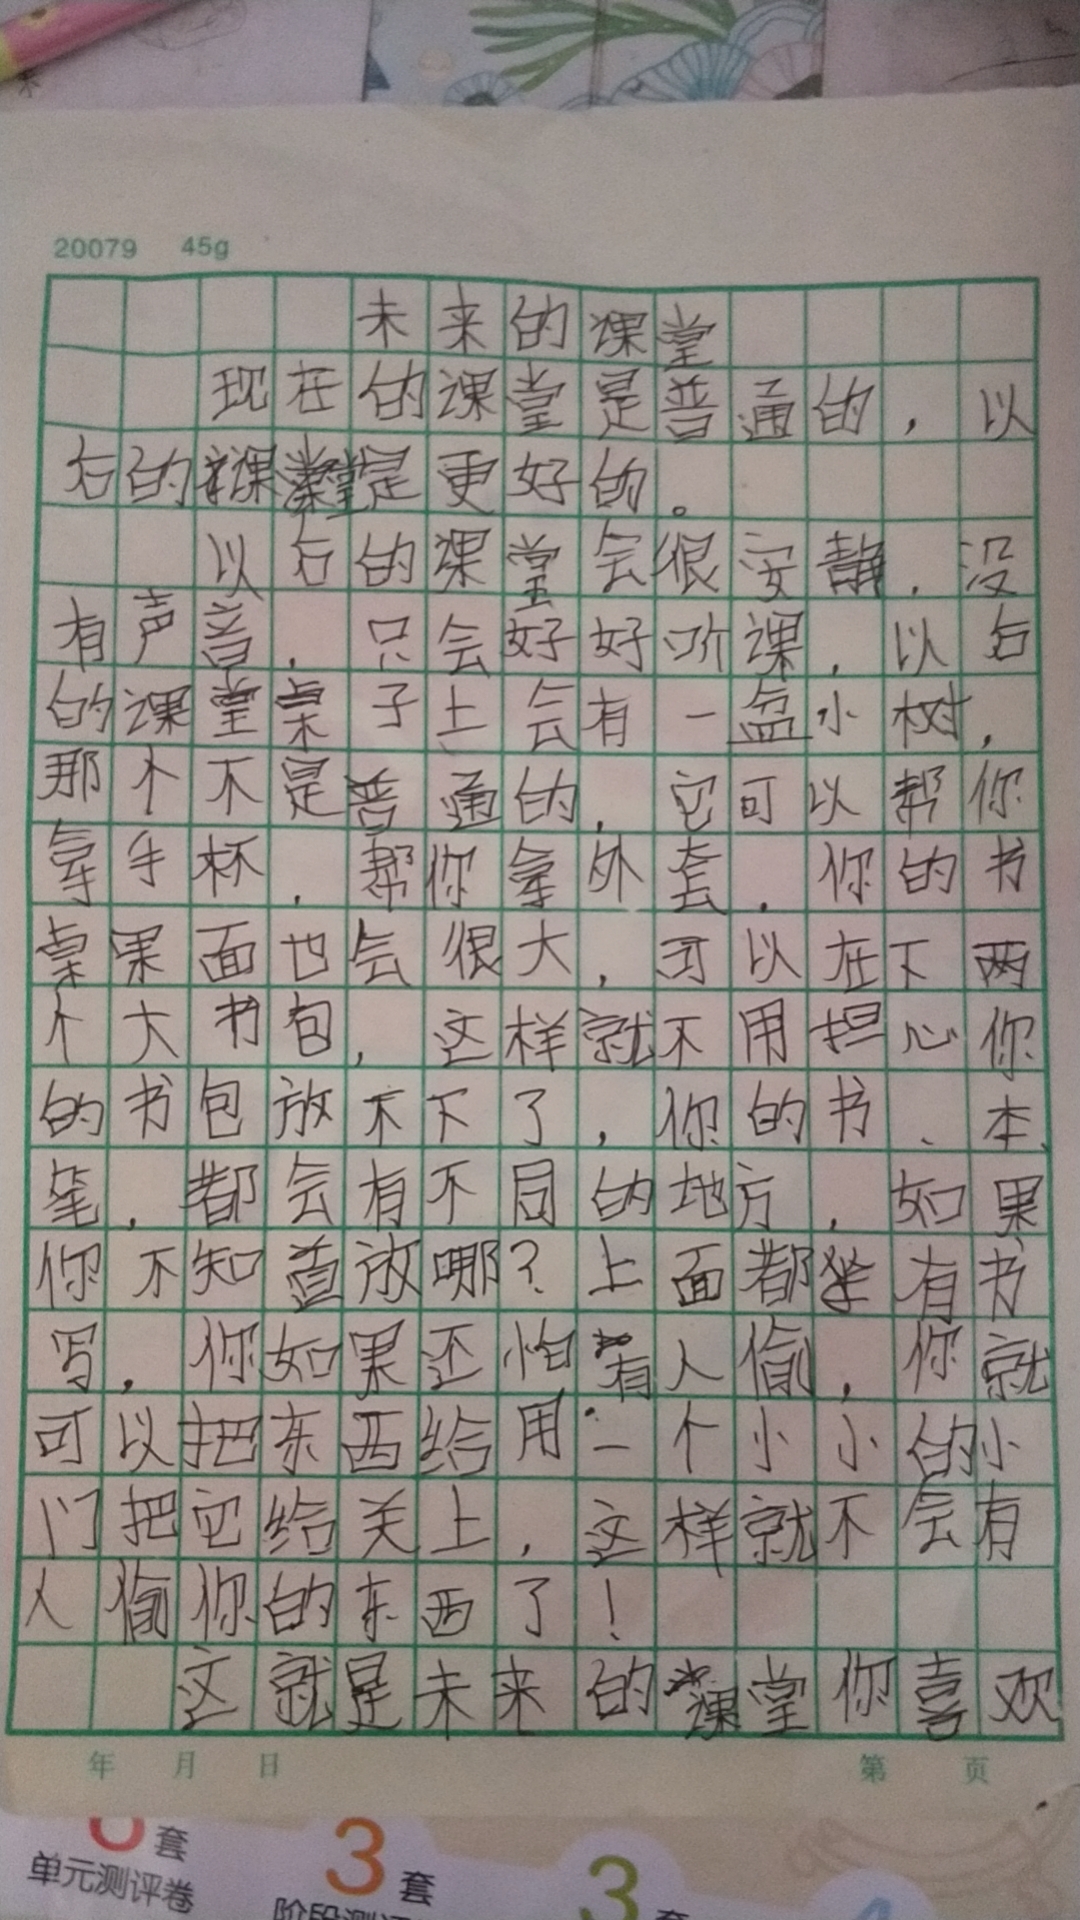 20079 45g
未来的课堂
现在的课堂是普通的，以
后的课堂是更好的。
以后的课堂会很安静，没
有声音，只会好好听课，以后
的课堂桌子上会有一盆小树，
那个不是普通的，它可以帮你
拿手杯，帮你拿外套，你的书
桌果面也会很大，可以在下两
个大书包，这样就不用担心你
的书包放不下了，你的书、本、
笔，都会有不同的地方，如果
你不知道放哪？上面都有书
写，你如果还怕有人偷，你就
可以把东西给用一个小小的小
门把它给关上，这样就不会有
人偷你的东西了！
这就是未来的课堂你喜欢
年 月 日 第 页
套 3套 3
单元测评卷